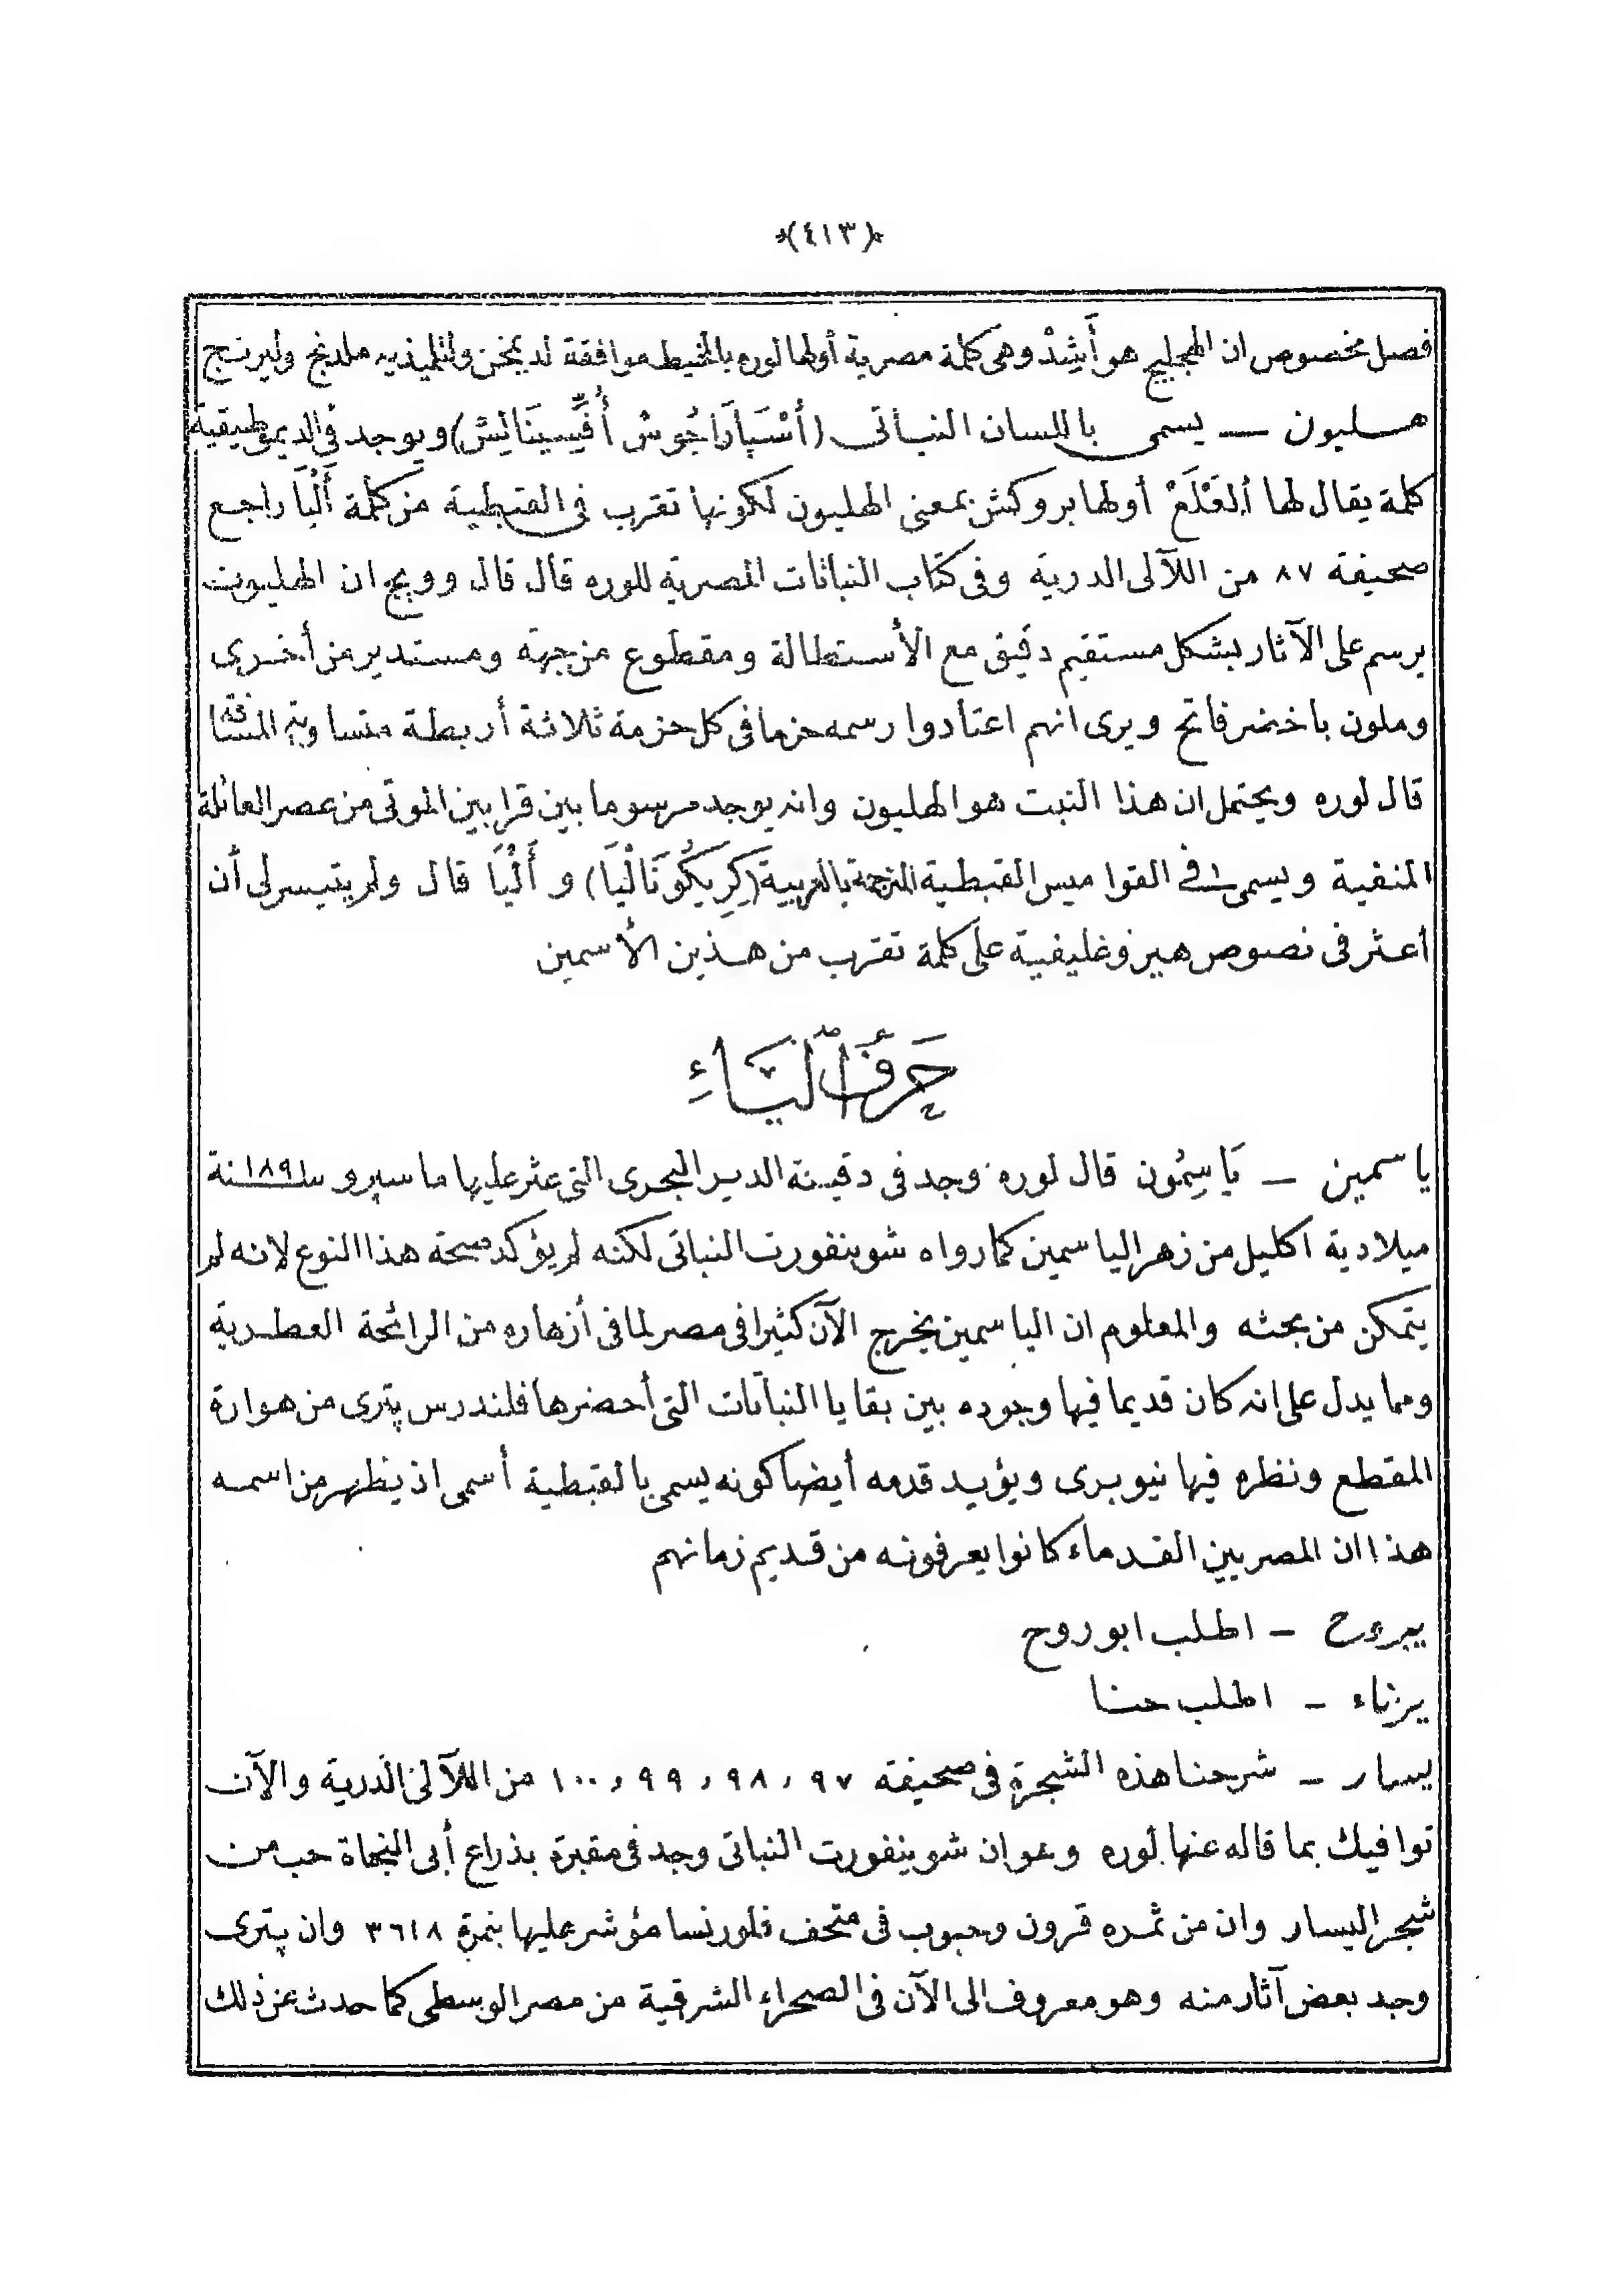 (٤١٣)
فصل مخصوص ان الهجليج هو أَشِدْ وهى كلمة مصرية أولها لوره بالمخيط موافقة لديمخن وتلميذيه ملدنج وليرنج
هليون — يسمى باللسان النباتى (أَسْپَارَاجُوسْ أُفِّيسِينَالِيسْ) ويوجد فى الديموطيقية
كلمة يقال لها أَلْعَلَمْ أولها بروكش بمعنى الهليون لكونها تقرب فى القبطية من كلمة أَلْيَا راجع
صحيفة ٨٧ من اللآلى الدرية وفى كتاب النباتات المصرية للوره قال قال وويج ان الهليون
يرسم على الآثار بشكل مستقيم دقيق مع الأستطالة ومقطوع من جهة ومستدير من أخرى
وملون باخضر فاتح ويرى انهم اعتادوا رسمه حزما فى كل حزمة ثلاثة أربطة متساوية المسافة
قال لوره ويحتمل ان هذا النبت هو الهليون وانه يوجد مرسوما بين قرابين الموتى من عصر العائلة
المنفية ويسمى فى القواميس القبطية المترجمة بالعربية (كِرِيكُونَالْيَا) و أَلْيَا قال ولم يتيسر لى أن
أعثر فى نصوص هيروغليفية على كلمة تقرب من هذين الأسمين
حَرْفُ الْيَاءِ
ياسمين — يَاسِمُون قال لوره وجد فى دفينة الدير البحرى التى عثر عليها ماسپرو سنة ١٨٩١
ميلادية اكليل من زهر الياسمين كما رواه شوينفورت النباتى لكنه لم يؤكد صحة هذا النوع لانه لم
يتمكن من بحثه والمعلوم ان الياسمين يخرج الآن كثيرا فى مصر لما فى أزهاره من الرائحة العطرية
ومما يدل على انه كان قديما فيها وجوده بين بقايا النباتات التى أحضرها فلندرس پترى من هوارة
المقطع ونظره فيها نيوبرى ويؤيد قدمه أيضا كونه يسمى بالقبطية أسمى اذ يظهر من اسمه
هذا ان المصريين القدماء كانوا يعرفونه من قديم زمانهم
يبروح — اطلب ابوروح
يرناء — اطلب حنا
يسار — شرحنا هذه الشجرة فى صحيفة ٩٧ ، ٩٨ ، ٩٩ ، ١٠٠ من اللآلئ الدرية والآن
نوافيك بما قاله عنها لوره وهو ان شوينفورت النباتى وجد فى مقبرة بذراع أبى النجاة حب من
شجر اليسار وان من ثمره قرون وحبوب فى متحف فلورنسا مؤشر عليها بنمرة ٣٦١٨ وان پترى
وجد بعض آثار منه وهو معروف الى الآن فى الصحراء الشرقية من مصر الوسطى كما حدث عن ذلك